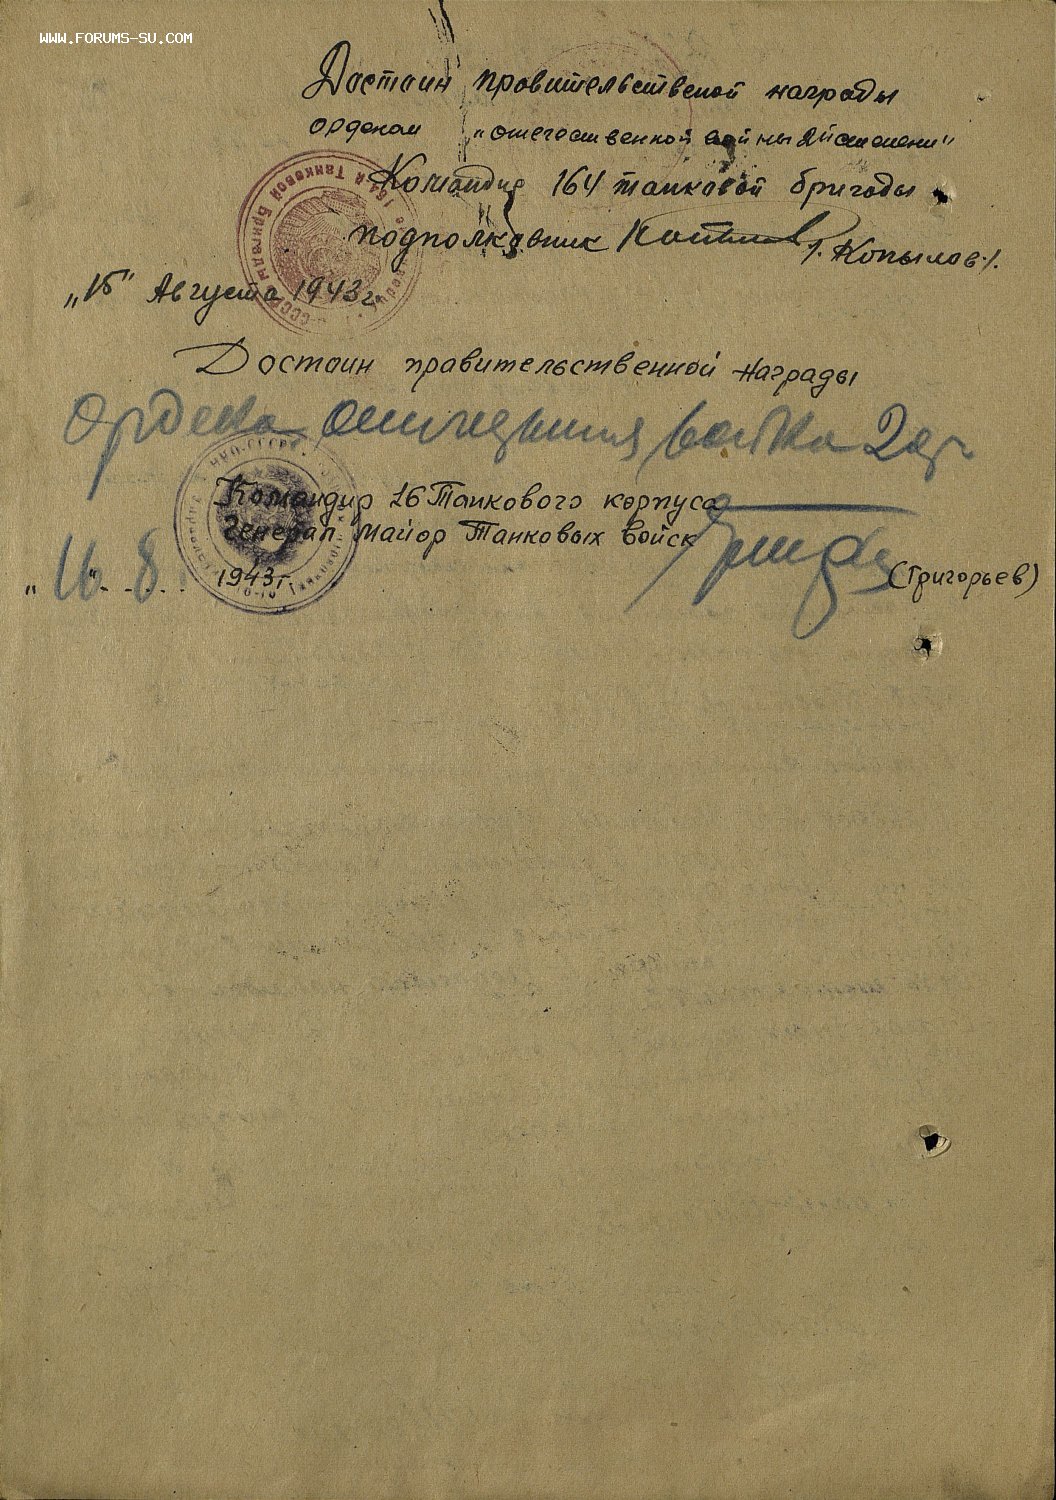 WWW.FORUMS-SU.COM
Достоин правительственой награды
орденом „отечественной войны 2й степени"
Командир 164 танковой бригады
подполковник /.Копылов./.
„15" Августа 1943г.
Достоин правительственной награды
Ордена войны 2
Командир 16 Танкового корпуса
Генерал Майор Танковых войск
„16" 8. 1943г. (Григорьев)